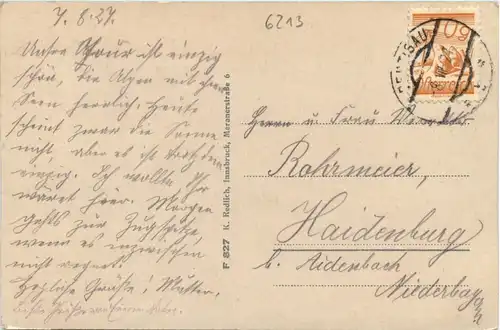 7. 8. 27.
6213
Unsre Tour ist einzig
schön, die Alpen mit ihren
Seen herrlich. Heute
scheint zwar die Sonne
nicht, aber es ist trotzdem
einzig. Ich wollte Ihr
wäret hier. Morgen
gehts zur Zugspitze
wenn es inzwischen
nicht regnet.
Herzliche Grüße! Mutter.
F 827 K. Redlich, Innsbruck, Meranerstraße 6
60
PERTISAU
Herrn u. Frau
Rohrmeier,
Haidenburg
b. Aidenbach
Niederbayern